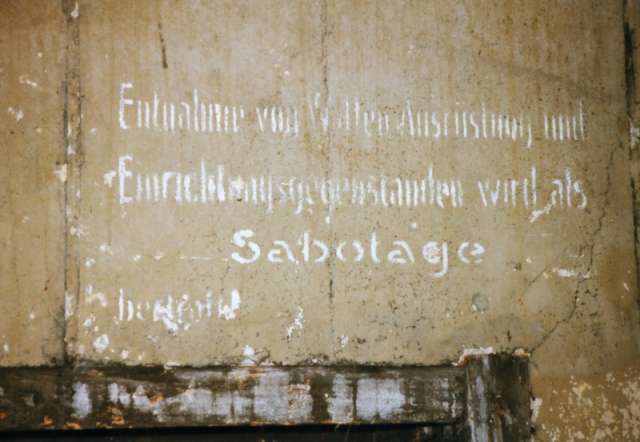 Entnahme von Waffen Ausrüstung und
Einrichtungsgegenständen wird als
Sabotage
bestraft